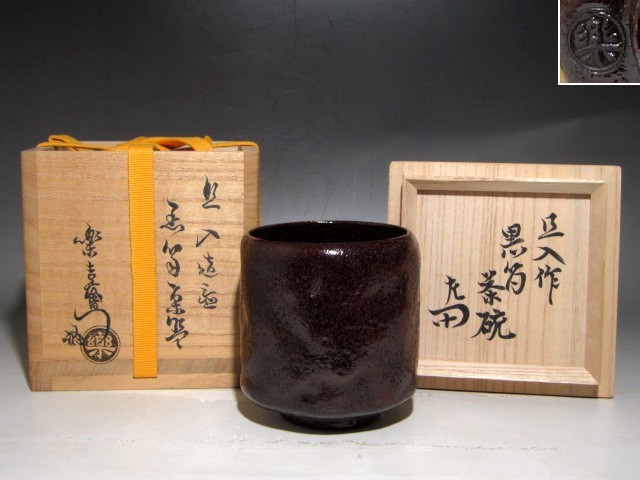 旦入造之
黒筒茶碗
樂吉左衛門
樂
旦入作
黒筒
茶碗
左(花押)
樂